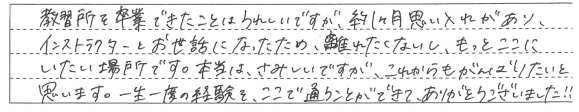 教習所を卒業できたことはうれしいですが、約1ヶ月思い入れがあり、
インストラクターとお世話になったため、離れたくないし、もっとここに
いたい場所です。本当は、さみしいですが、これからもがんばりたいと
思います。一生一度の経験を、ここで通うことができて、ありがとうございました!!